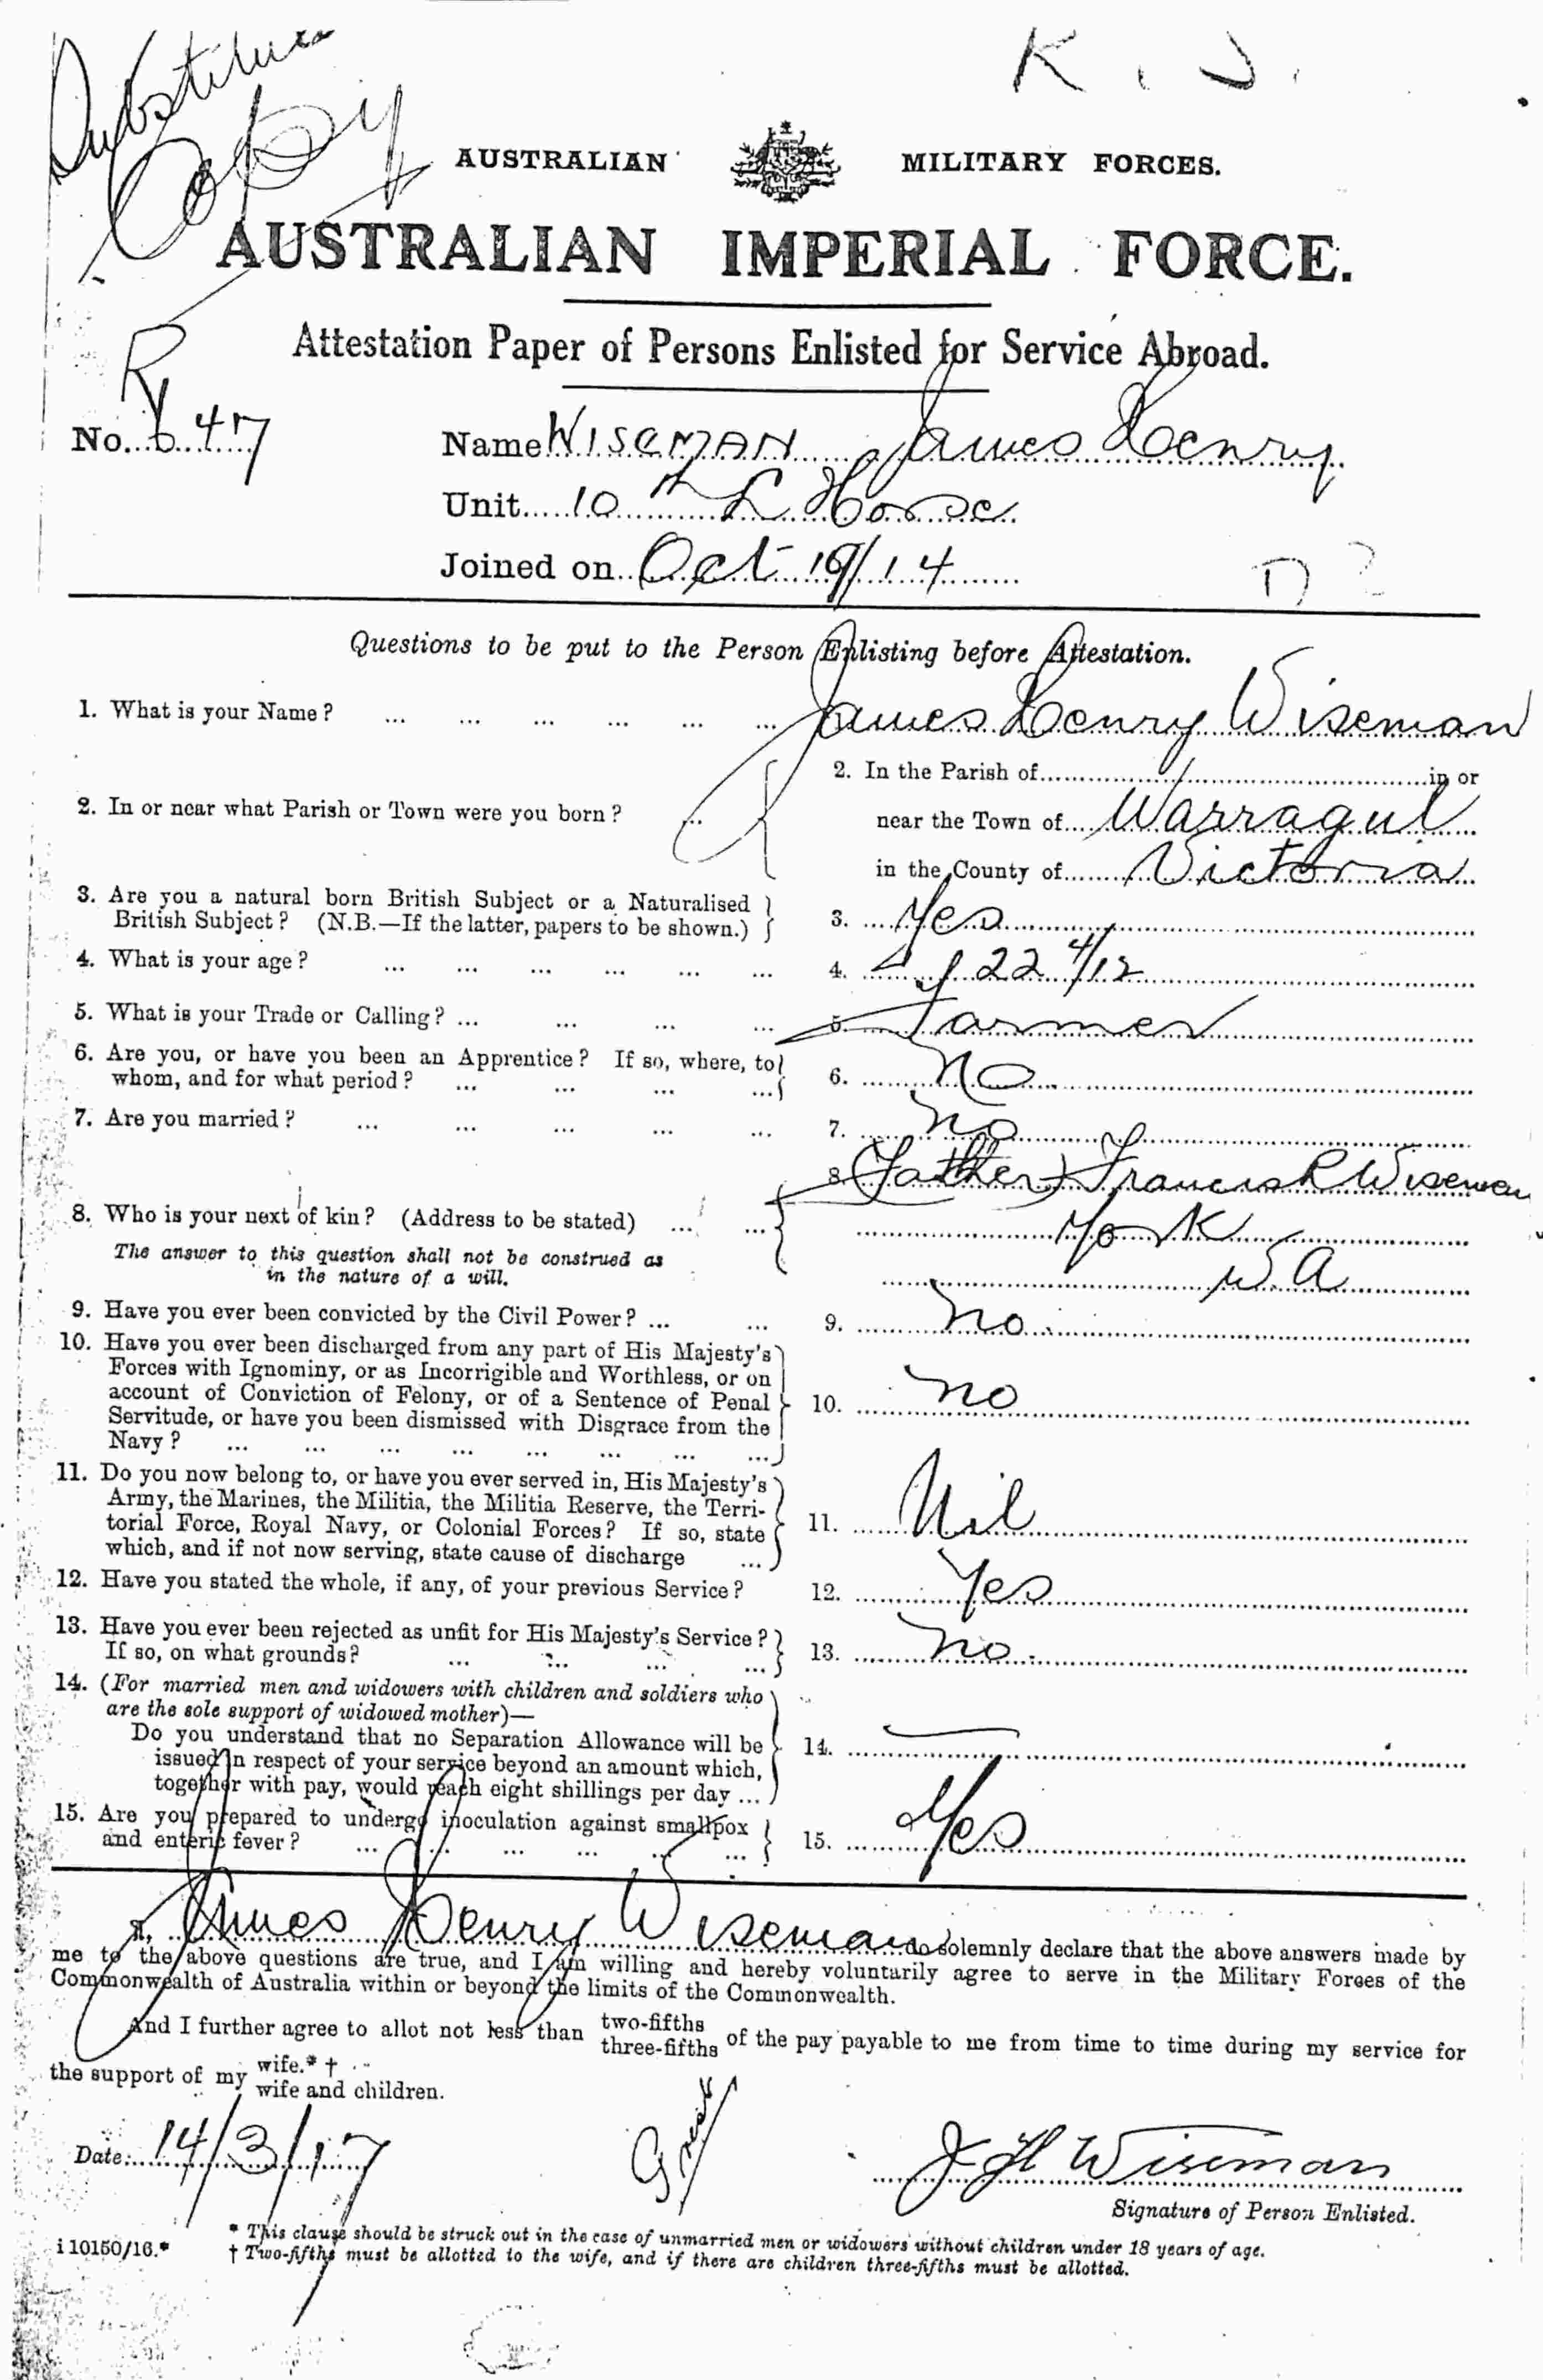 Substitute
Copy
K. J.
AUSTRALIAN MILITARY FORCES.
AUSTRALIAN IMPERIAL FORCE.
Attestation Paper of Persons Enlisted for Service Abroad.
No. 647
Name WISEMAN James Henry
Unit 10th L Horse
Joined on Oct 19/14
Questions to be put to the Person Enlisting before Attestation.
1. What is your Name? ... ... ... ... ... ... James Henry Wiseman
2. In or near what Parish or Town were you born? ...
2. In the Parish of in or
near the Town of Warragul
in the County of Victoria
3. Are you a natural born British Subject or a Naturalised
British Subject? (N.B.—If the latter, papers to be shown.)
3. Yes
4. What is your age? ... ... ... ... ... ... 4. 22 4/12
5. What is your Trade or Calling? ... ... ... ... 5. Farmer
6. Are you, or have you been an Apprentice? If so, where, to
whom, and for what period? ... ... ... ...
6. No
7. Are you married? ... ... ... ... ... 7. No
8. Who is your next of kin? (Address to be stated) ... ...
The answer to this question shall not be construed as
in the nature of a will.
8. Father Francis R Wiseman
York
W A
9. Have you ever been convicted by the Civil Power? ... ... 9. No
10. Have you ever been discharged from any part of His Majesty's
Forces with Ignominy, or as Incorrigible and Worthless, or on
account of Conviction of Felony, or of a Sentence of Penal
Servitude, or have you been dismissed with Disgrace from the
Navy? ... ... ... ... ... ... ... ...
10. no
11. Do you now belong to, or have you ever served in, His Majesty's
Army, the Marines, the Militia, the Militia Reserve, the Terri-
torial Force, Royal Navy, or Colonial Forces? If so, state
which, and if not now serving, state cause of discharge ...
11. Nil
12. Have you stated the whole, if any, of your previous Service? 12. Yes
13. Have you ever been rejected as unfit for His Majesty's Service?
If so, on what grounds? ... ... ... ...
13. No
14. (For married men and widowers with children and soldiers who
are the sole support of widowed mother)—
Do you understand that no Separation Allowance will be
issued in respect of your service beyond an amount which,
together with pay, would reach eight shillings per day ...
14.
15. Are you prepared to undergo inoculation against smallpox
and enteric fever? ... ... ... ... ... ...
15. Yes
I, James Henry Wiseman do solemnly declare that the above answers made by
me to the above questions are true, and I am willing and hereby voluntarily agree to serve in the Military Forces of the
Commonwealth of Australia within or beyond the limits of the Commonwealth.
And I further agree to allot not less than two-fifths
three-fifths of the pay payable to me from time to time during my service for
the support of my wife.* †
wife and children.
Date: 14/3/17
J H Wiseman
Signature of Person Enlisted.
i 10150/16.*
* This clause should be struck out in the case of unmarried men or widowers without children under 18 years of age.
† Two-fifths must be allotted to the wife, and if there are children three-fifths must be allotted.